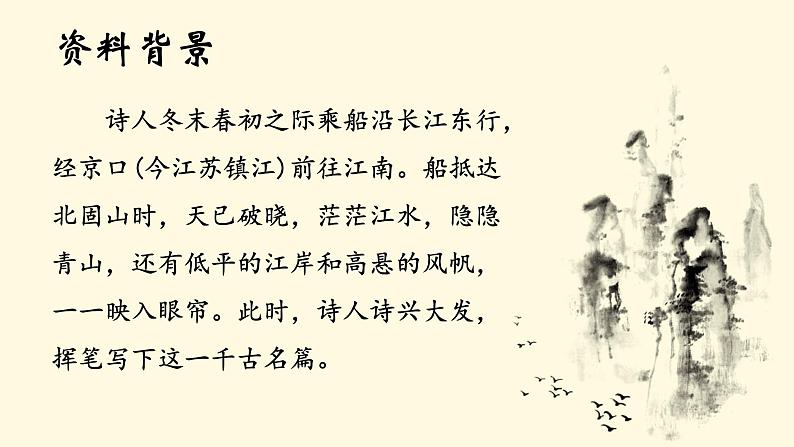 资料背景
诗人冬末春初之际乘船沿长江东行，
经京口(今江苏镇江)前往江南。船抵达
北固山时，天已破晓，茫茫江水，隐隐
青山，还有低平的江岸和高悬的风帆，
一一映入眼帘。此时，诗人诗兴大发，
挥笔写下这一千古名篇。